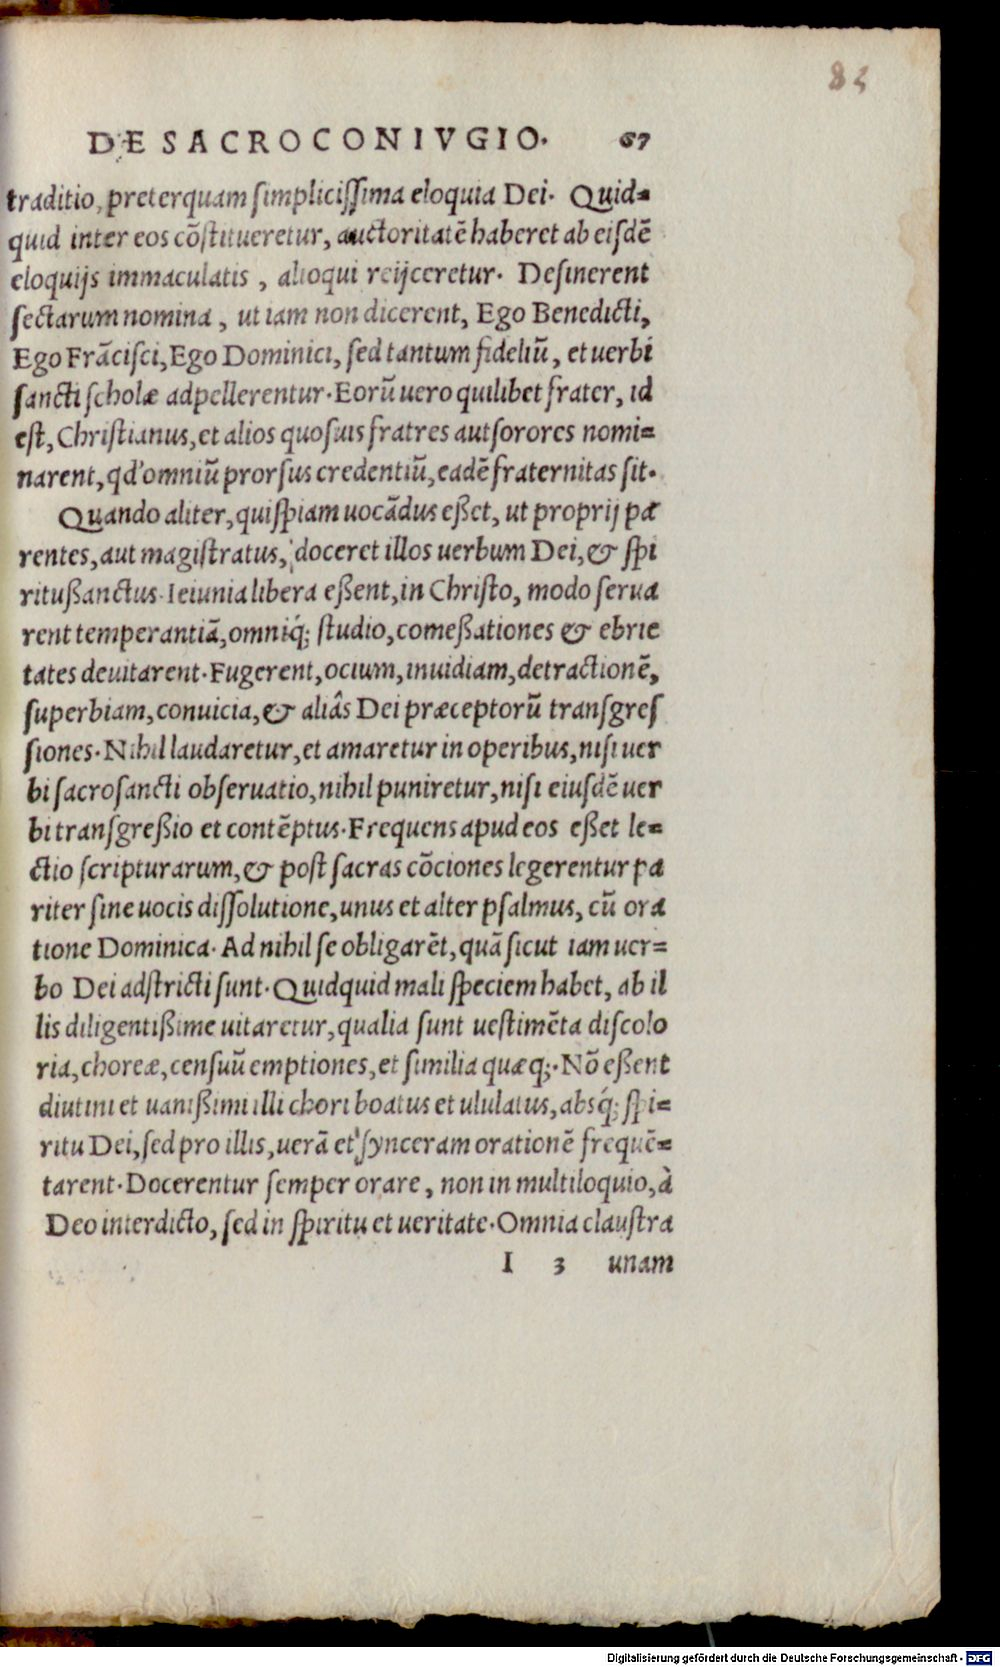 83
DE SACRO CONIVGIO. 67
traditio, preterquam simplicissima eloquia Dei. Quid=
quid inter eos cõstitueretur, auctoritatẽ haberet ab eisdẽ
eloquijs immaculatis, alioqui reijceretur. Desinerent
sectarum nomina, ut iam non dicerent, Ego Benedicti,
Ego Frãcisci, Ego Dominici, sed tantum fideliũ, et uerbi
sancti scholæ adpellerentur. Eorũ uero quilibet frater, id
est, Christianus, et alios quosuis fratres aut sorores nomi=
narent, qd' omniũ prorsus credentiũ, eadẽ fraternitas sit.
Quando aliter, quispiam uocãdus eßet, ut proprij pa
rentes, aut magistratus, doceret illos uerbum Dei, & spi
ritußanctus. Ieiunia libera eßent, in Christo, modo serua
rent temperantiã, omniq́; studio, comeßationes & ebrie
tates deuitarent. Fugerent, ocium, inuidiam, detractionẽ,
superbiam, conuicia, & aliâs Dei præceptorũ transgres
siones. Nihil laudaretur, et amaretur in operibus, nisi uer
bi sacrosancti obseruatio, nihil puniretur, nisi eiusdẽ uer
bi transgreßio et contẽptus. Frequens apud eos eßet le=
ctio scripturarum, & post sacras cõciones legerentur pa
riter sine uocis dissolutione, unus et alter psalmus, cũ ora
tione Dominica. Ad nihil se obligarẽt, quã sicut iam uer=
bo Dei adstricti sunt. Quidquid mali speciem habet, ab il
lis diligentißime uitaretur, qualia sunt uestimẽta discolo
ria, choreæ, censuũ emptiones, et similia quæq;. Nõ eßent
diutini et uanißimi illi chori boatus et ululatus, absq́; spi=
ritu Dei, sed pro illis, uerã et synceram orationẽ frequẽ=
tarent. Docerentur semper orare, non in multiloquio, à
Deo interdicto, sed in spiritu et ueritate. Omnia claustra
I 3 unam
Digitalisierung gefördert durch die Deutsche Forschungsgemeinschaft - DFG